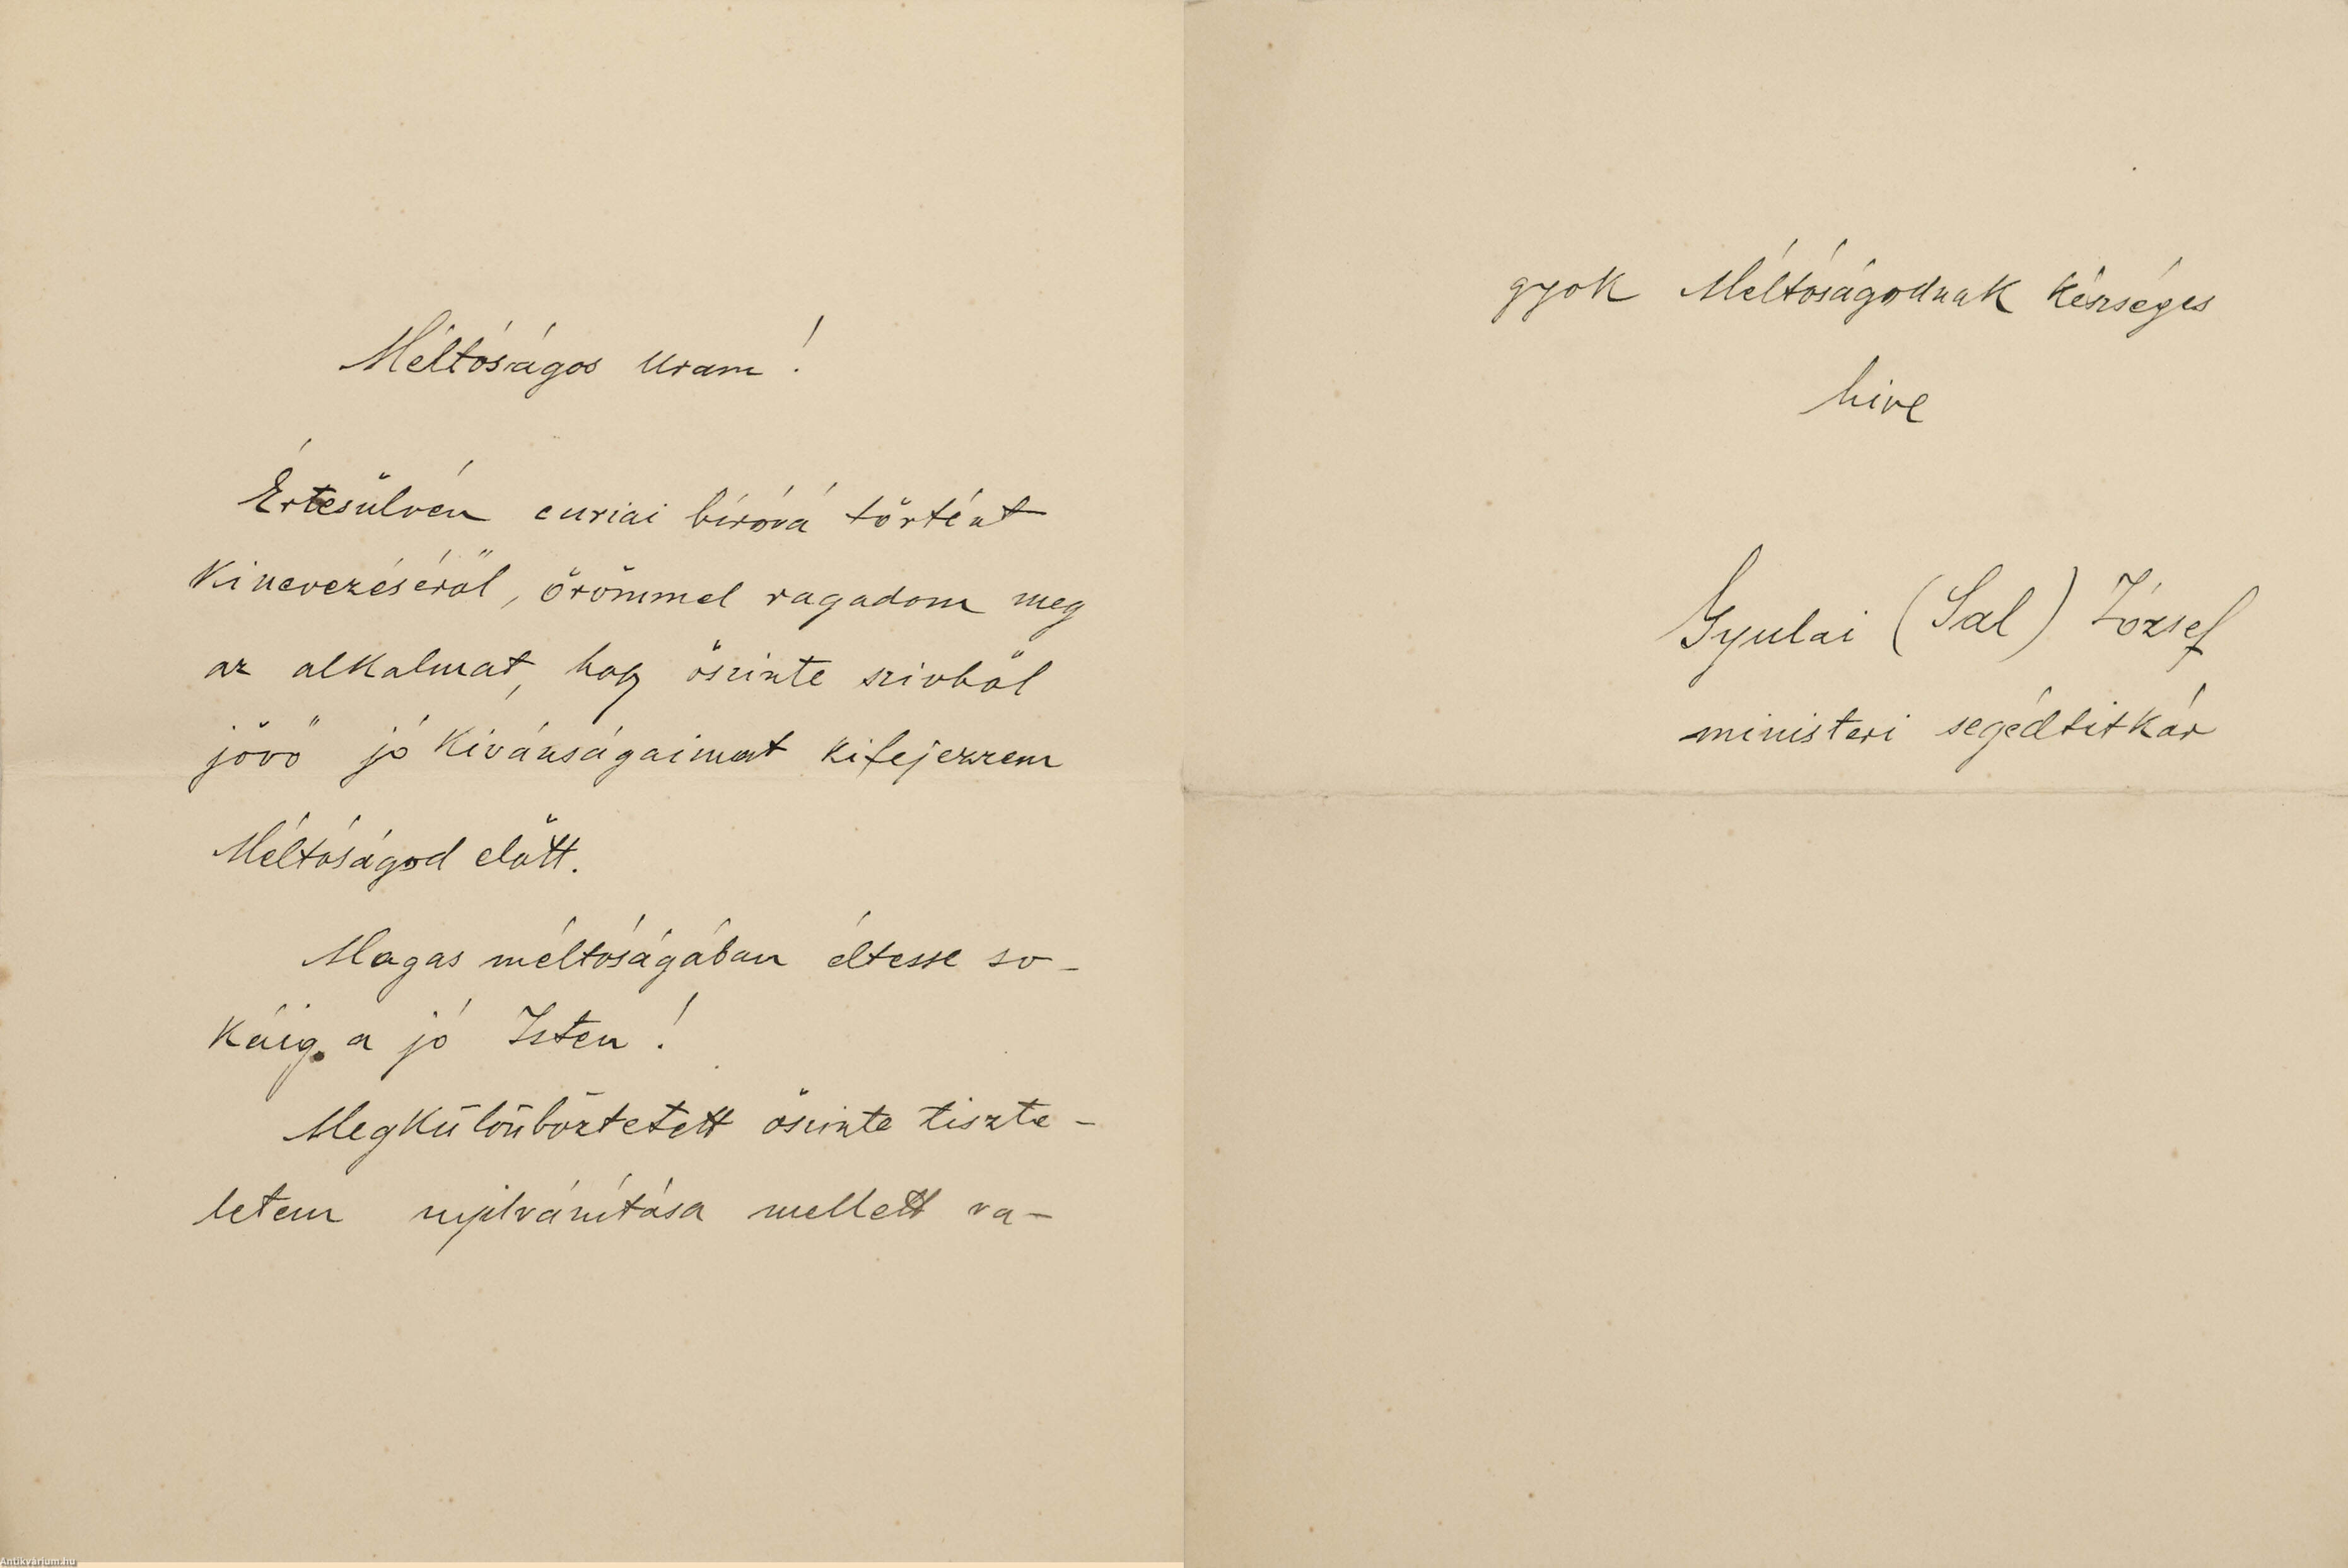 Méltóságos Uram!
Értesülvén curiai bíróvá történt
kinevezéséről, örömmel ragadom meg
az alkalmat, hogy őszinte szivből
jövő jó kivánságaimat kifejezzem
Méltóságod előtt.
Magas méltóságában éltesse so-
káig a jó Isten!
Megkülönböztetett őszinte tiszte-
letem nyilvánítása mellett va-
gyok Méltóságodnak készséges
hive
Gyulai (Gál) József
ministeri segédtitkár
Antikvarium.hu